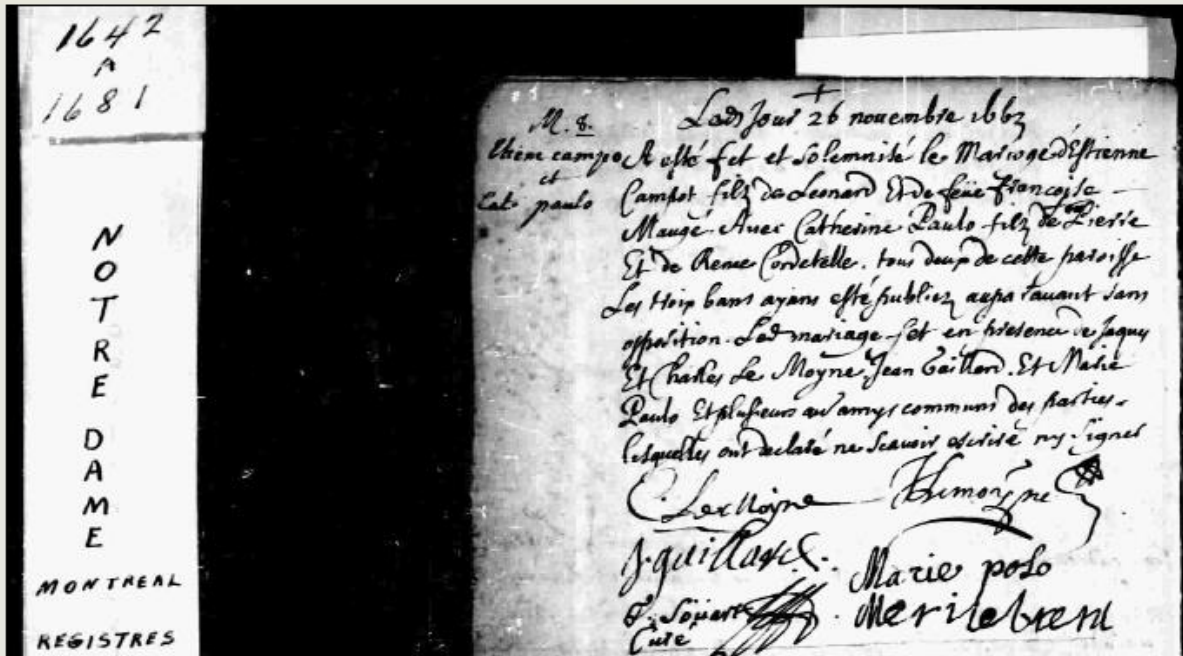 1642
A
1681
NOTRE DAME
MONTREAL
REGISTRES
M. 8.
Etiene campo
et
Cat. paulo
Led Jour 26 novembre 1663
A esté fet et solemnisé le Mariage d'Estienne
Campot filz de Leonard Et de feüe Francoise
Maugé Avec Catherine Paulo fille de Pierre
Et de Renée Cordetelle. tous deux de cette paroisse
Les trois bans ayans esté publiez auparauant sans
opposition. Led mariage fet en presence de Jaques
Et Charles Le Moyne Jean Gaillard. Et Marie
Paulo Et plusieurs au amys communs des parties
lesquelles ont declaré ne scavoir escrire ny signer
C LeMoyne
J Lemoyne
J guillard
Marie polo
G. Soüart
Curé